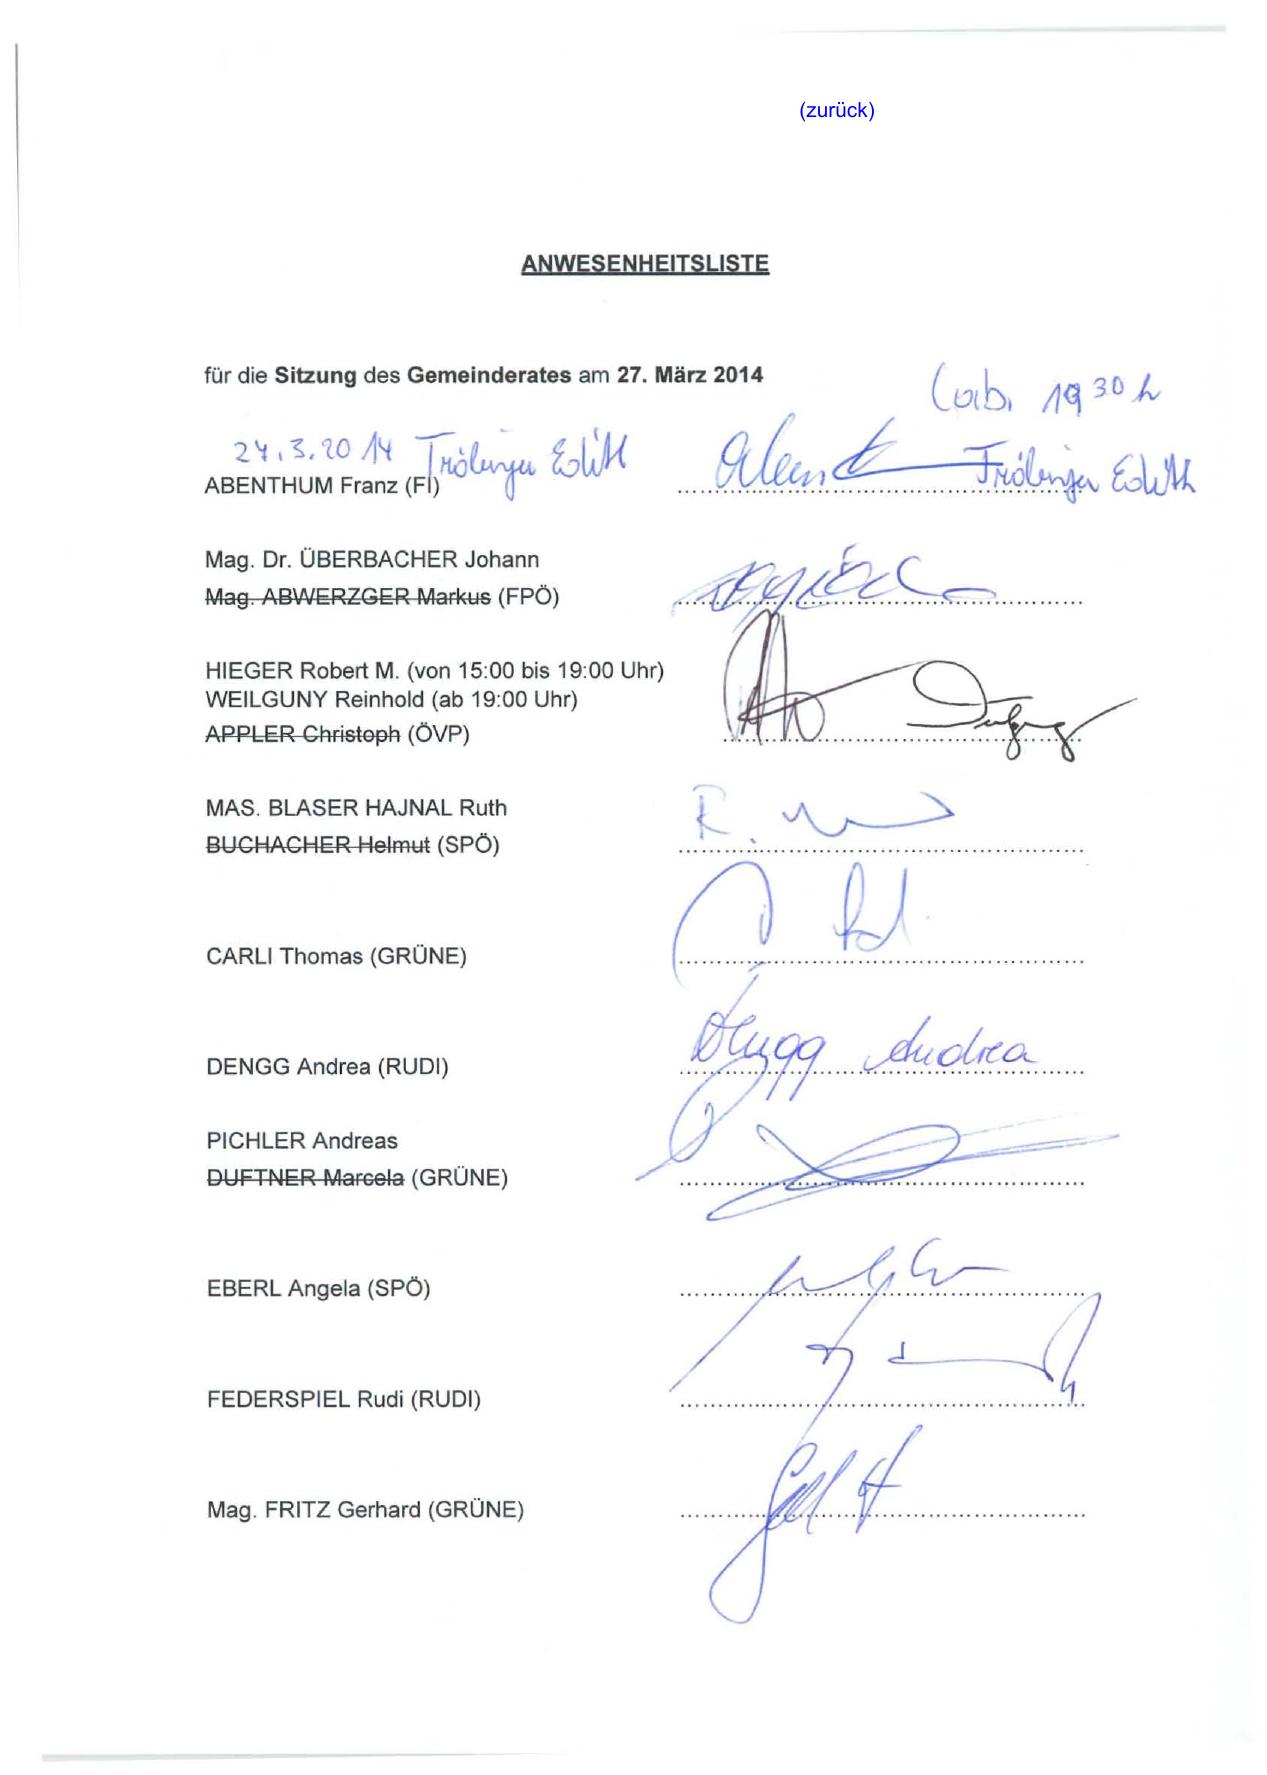 (zurück)
ANWESENHEITSLISTE
für die Sitzung des Gemeinderates am 27. März 2014
(ab. 19 30 h
27.3.2014 Edith
Edith
ABENTHUM Franz (FI)
Mag. Dr. ÜBERBACHER Johann
Mag. ABWERZGER Markus (FPÖ)
HIEGER Robert M. (von 15:00 bis 19:00 Uhr)
WEILGUNY Reinhold (ab 19:00 Uhr)
APPLER Christoph (ÖVP)
MAS. BLASER HAJNAL Ruth
BUCHACHER Helmut (SPÖ)
CARLI Thomas (GRÜNE)
DENGG Andrea (RUDI) Dengg Andrea
PICHLER Andreas
DUFTNER Marcela (GRÜNE)
EBERL Angela (SPÖ)
FEDERSPIEL Rudi (RUDI)
Mag. FRITZ Gerhard (GRÜNE)